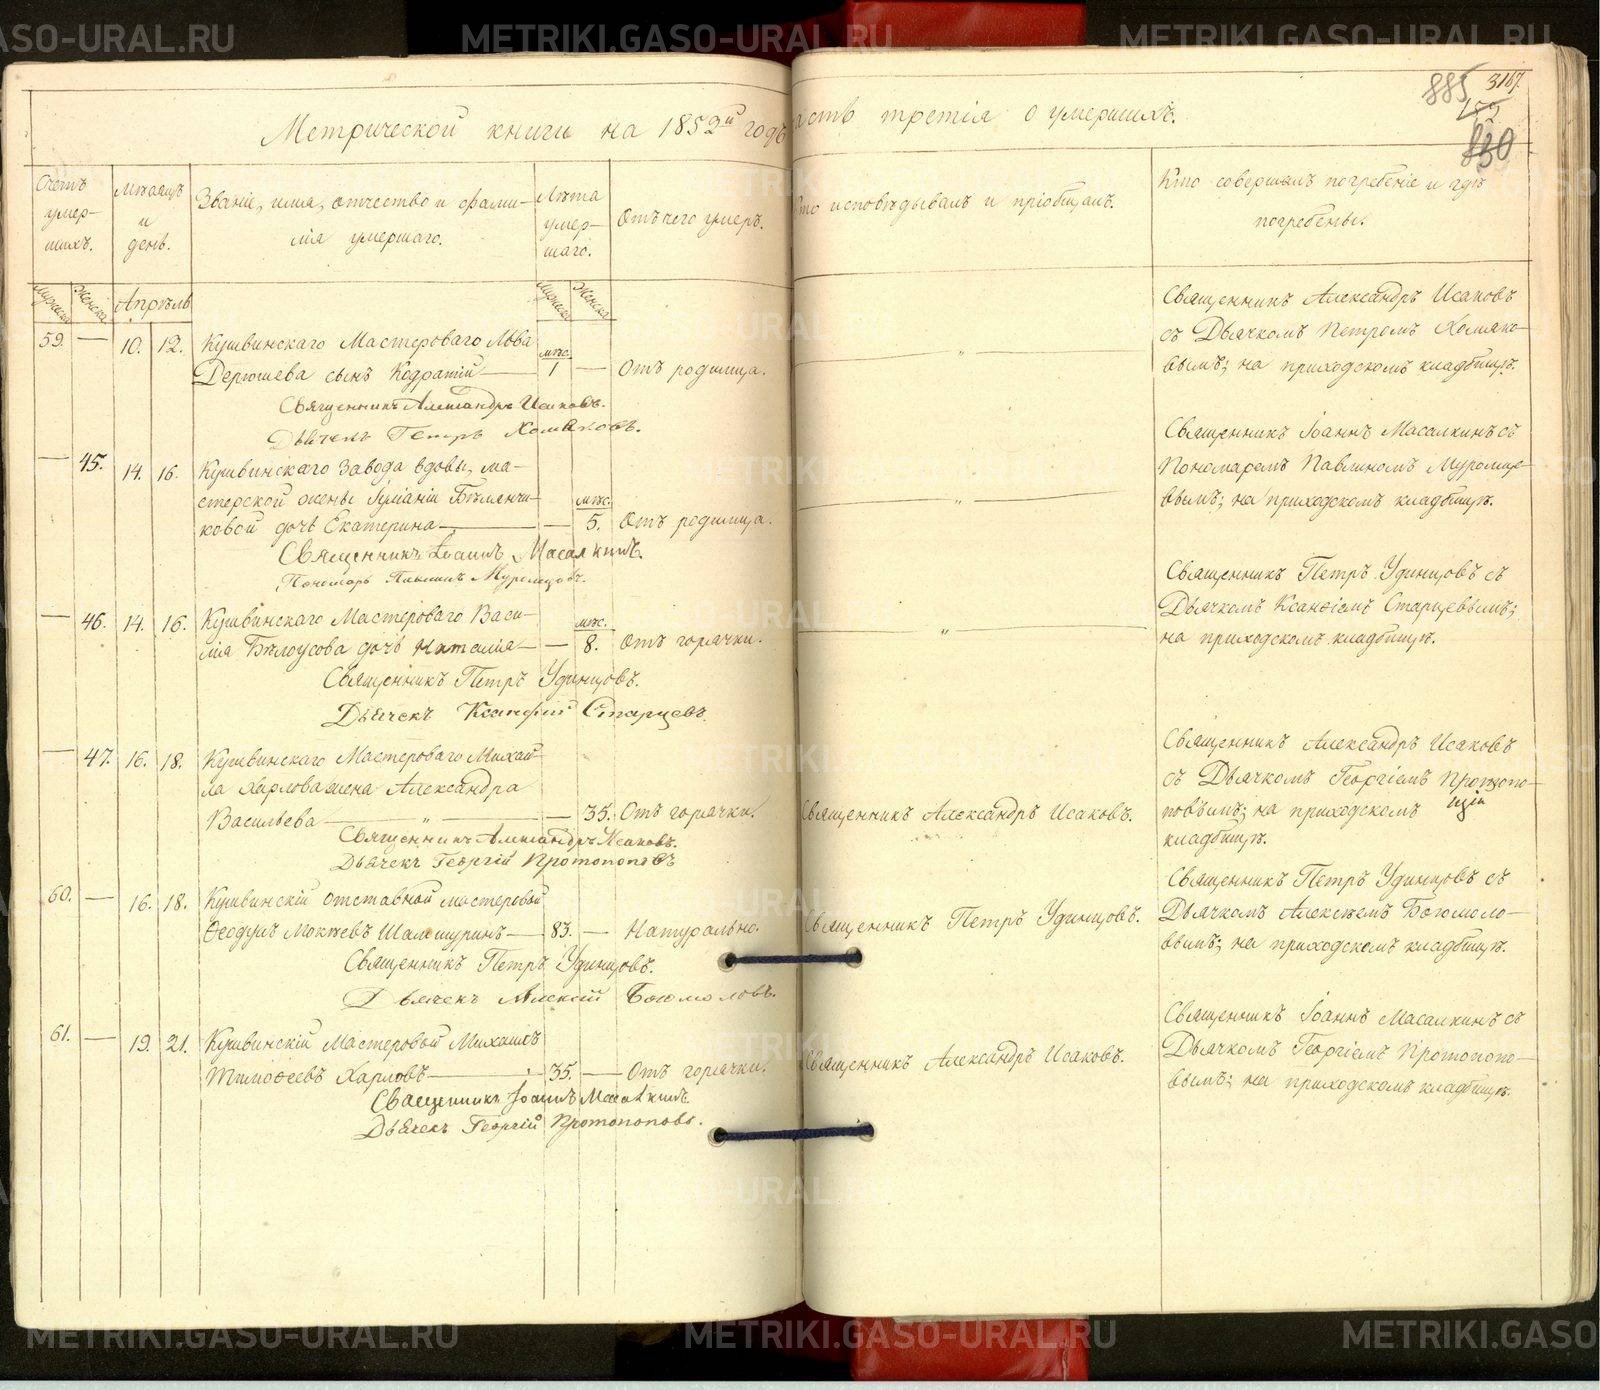 METRIKI.GASO-URAL.RU
885 3167.
152
830
Метрической книги на 1852й годъ часть третія о умершихъ.
Счетъ умер-шихъ.
Мѣсяцъ и день.
Званіе, имя, отчество и фами-
лія умершаго.
Лѣта умер-шаго.
Отъ чего умеръ.
Кто исповѣдывалъ и пріобщалъ.
Кто совершалъ погребеніе и гдѣ
погребены.
Мужеска Женска Апрѣль Мужеска Женска
59. — 10. 12. Кушвинскаго Мастероваго Льва
Дерюшева сынъ Кодратій — мѣс. 1 — Отъ родимца.
Священникъ Александръ Исаковъ
съ Дьячкомъ Петромъ Хомяко-
вымъ; на приходскомъ кладбищѣ.
Священникъ Александръ Исаковъ.
Дьячекъ Петръ Хомяковъ.
— 45. 14. 16. Кушвинскаго Завода вдовы, ма-
стерской жены Іуліаніи Бѣлянчи-
ковой дочь Екатерина — — мѣс. 5. Отъ родимца.
Священникъ Іоаннъ Масалкинъ съ
Пономаремъ Павлиномъ Муромце-
вымъ; на приходскомъ кладбищѣ.
Священникъ Іоаннъ Масалкинъ.
Пономарь Павлинъ Муромцовъ.
— 46. 14. 16. Кушвинскаго Мастероваго Васи-
лія Бѣлоусова дочь Наталія — — мѣс. 8. Отъ горячки.
Священникъ Петръ Удинцовъ съ
Дьячкомъ Ксанѳіемъ Старцевымъ;
на приходскомъ кладбищѣ.
Священникъ Петръ Удинцовъ.
Дьячекъ Ксанфій Старцевъ.
— 47. 16. 18. Кушвинскаго Мастероваго Михай-
ла Харлова жена Александра
Васильева — „ — — 35. Отъ горячки.
Священникъ Александръ Исаковъ.
Священникъ Александръ Исаковъ
съ Дьячкомъ Георгіемъ Протопо-
повымъ; на приходскомъ
кладбищѣ.
Священникъ Александръ Исаковъ.
Дьячекъ Георгій Протопоповъ
60. — 16. 18. Кушвинскій отставной мастеровой
Ѳеодулъ Мокѣевъ Шамшуринъ — 83. — Натурально.
Священникъ Петръ Удинцовъ.
Священникъ Петръ Удинцовъ съ
Дьячкомъ Алексѣемъ Богомоло-
вымъ; на приходскомъ кладбищѣ.
Священникъ Петръ Удинцовъ.
Дьячекъ Алексій Богомоловъ.
61. — 19. 21. Кушвинскій Мастеровой Михаилъ
Тимоѳеевъ Харловъ — 35. — Отъ горячки.
Священникъ Александръ Исаковъ.
Священникъ Іоаннъ Масалкинъ съ
Дьячкомъ Георгіемъ Протопопо-
вымъ; на приходскомъ кладбищѣ.
Священникъ Іоаннъ Масалкинъ.
Дьячекъ Георгій Протопоповъ.